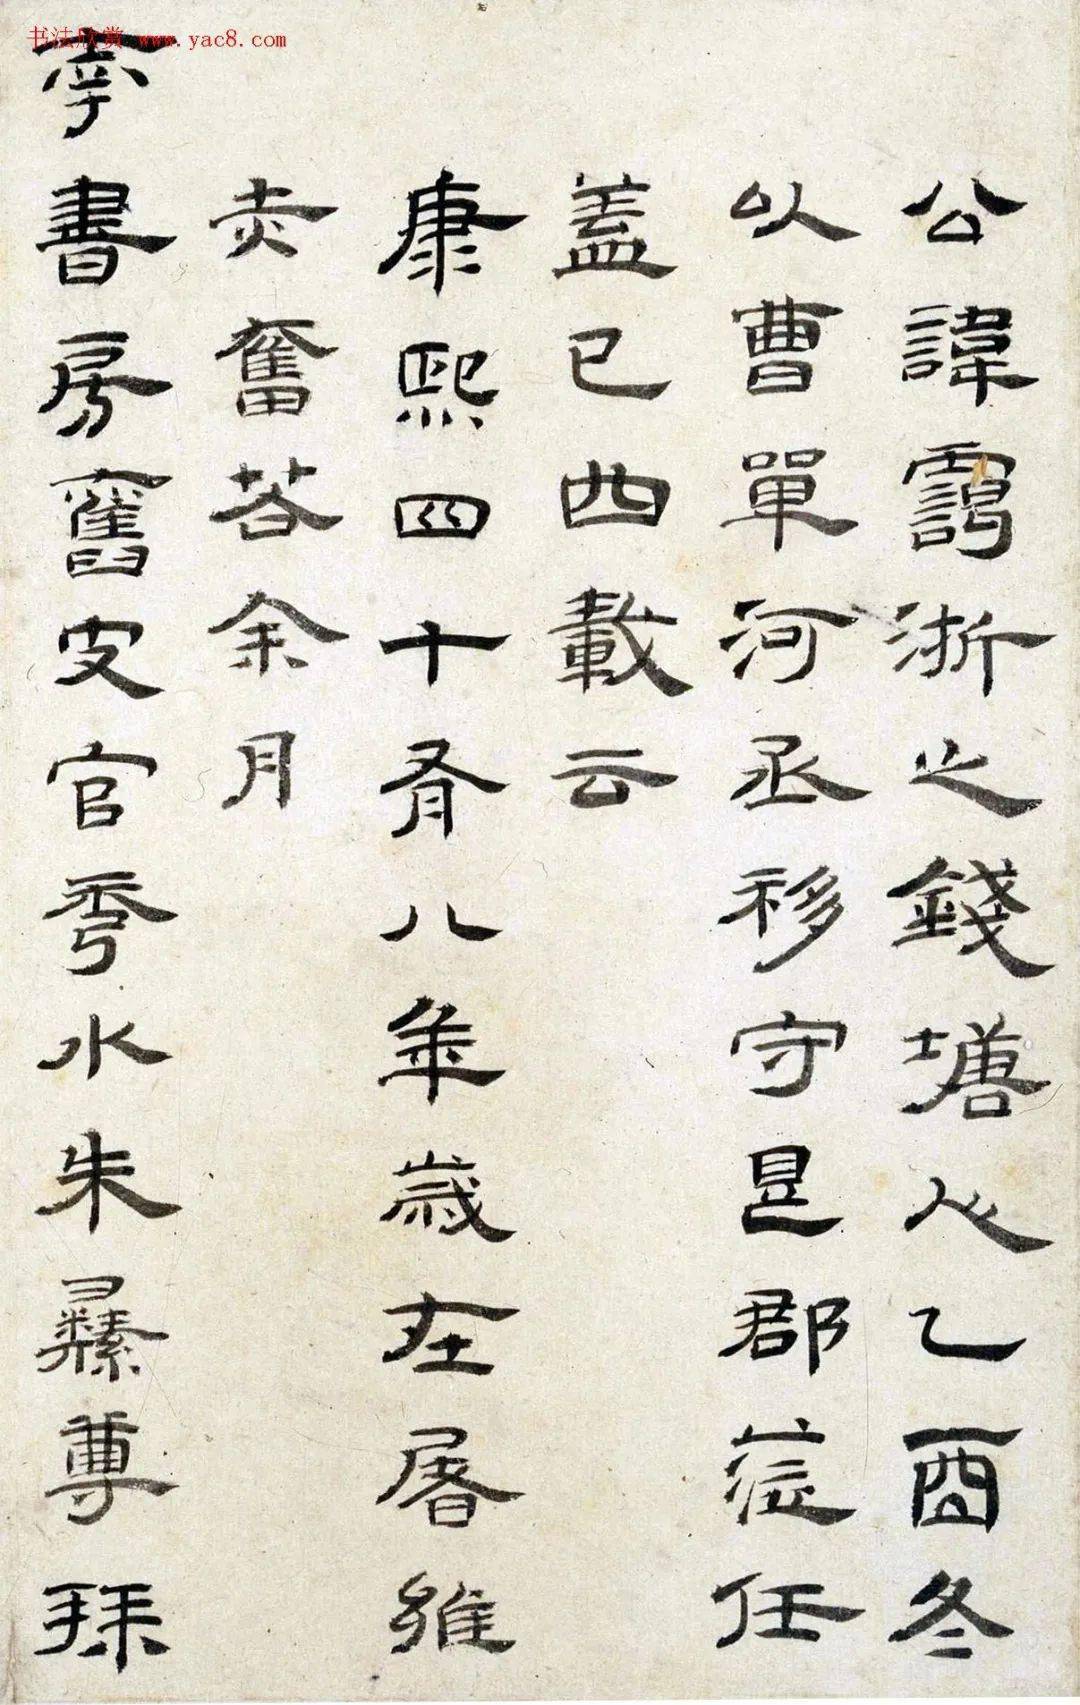 书法欣赏 www.yac8.com
公諱霶浙之錢塘人乙酉冬
以曹單河丞移守是郡莅任
蓋已四載云
康熙四十有八年歲在屠維
赤奮若余月
南書房舊史官秀水朱彝尊拜